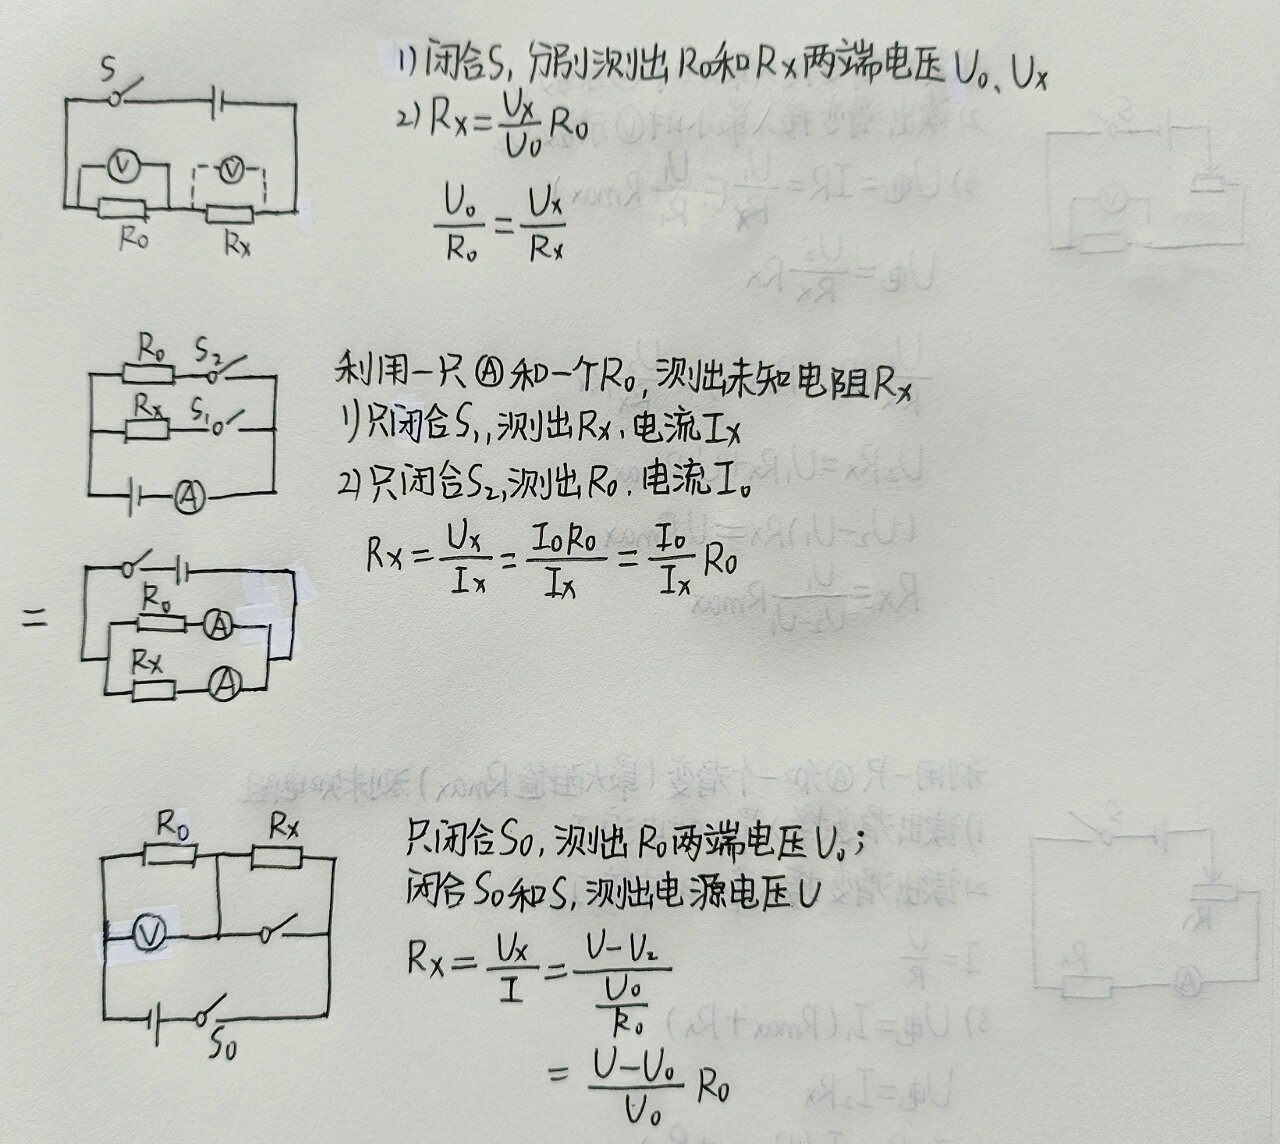 S
V
V
R₀
Rx
1) 闭合S, 分别测出R₀和Rx两端电压U₀、Ux
2) Rx=Ux/U₀ R₀
U₀/R₀=Ux/Rx
R₀
S₂
Rx
S₁
A
利用一只Ⓐ和一个R₀, 测出未知电阻Rx
1) 只闭合S₁, 测出Rx.电流Ix
2) 只闭合S₂, 测出R₀.电流I₀
Rx=Ux/Ix=I₀R₀/Ix=I₀/Ix R₀
=
R₀
A
Rx
A
R₀
Rx
V
S₀
只闭合S₀, 测出R₀两端电压U₀;
闭合S₀和S, 测出电源电压U
Rx=Ux/I=(U-U₂)/(U₀/R₀)
=(U-U₀)/U₀ R₀